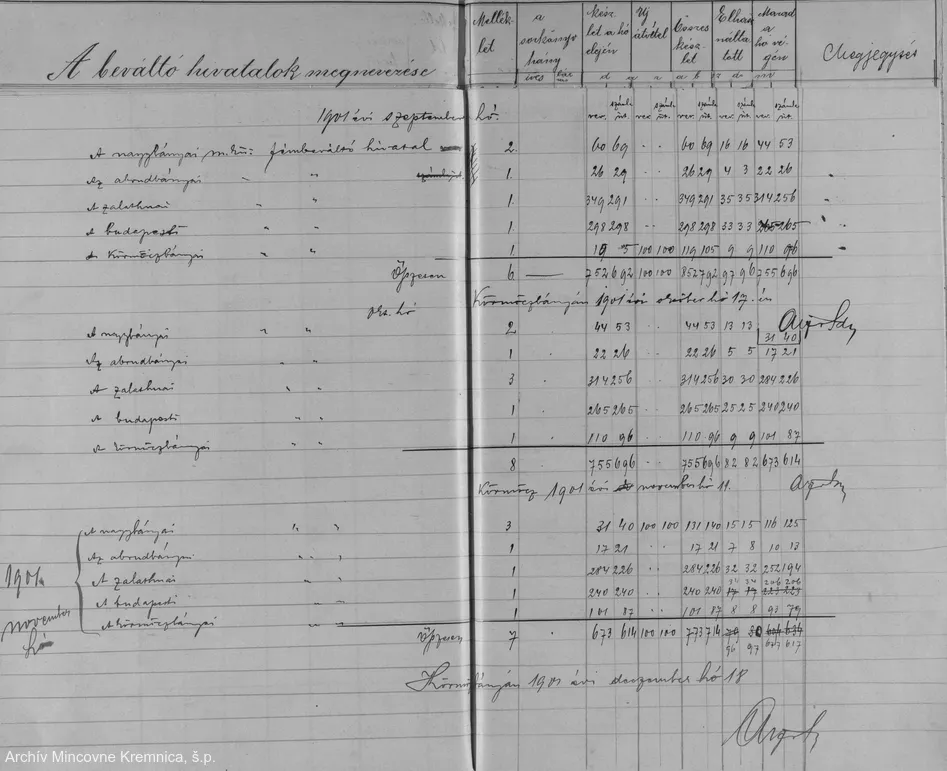 A beváltó hivatalok megnevezése
Mellék- a kész- Uj Össze Elhasz Marad Megjegyzés
let sorkönyv let a hó átvétel kész- nálta- a
hány elején let tott hó vé-
gén
1901 évi szeptember hó.
ver. szúnk. ver. ver. ver.
A nagybányai m. kir. fémbeváltó hivatal 2 60 69 60 69 16 16 44 53
Az abrudbányai " " 1 26 29 · · 26 29 4 3 22 26
A zalathnai " " 1 349 291 · · 349 291 35 35 314 256
A budapesti " " 1 298 298 · · 298 298 33 33 265 265
A körmöczbányai " " 1 5 100 100 119 105 9 9 110 96
Öszesen 6 — 752 692 100 100 852 792 97 96 755 696
Körmöczbányán 1901 évi október hó 17.-én
okt. hó
A nagybányai " " 2 44 53 44 53 13 13 31 40
Az abrudbányai 1 22 26 22 26 5 5 17 21
A zalathnai " " 3 314 256 · · 314 256 30 30 284 226
A budapesti " " 1 265 265 · · 265 265 25 25 240 240
A körmöczbányai " " 1 110 96 · · 110 96 9 9 101 87
8 755 696 · · 755 696 82 82 673 614
Körmöcz 1901 évi november hó 11.
1901 november hó
A nagybányai " " 3 31 40 100 100 131 140 15 15 116 125
Az abrudbányai " " 1 17 21 · · 17 21 7 8 10 13
A zalathnai " " 1 284 226 · · 284 226 32 32 252 194
34 34 206 206
A budapesti " " 1 240 240 · · 240 240 17 17 223 223
A körmöczbányai " " 1 101 87 · · 101 87 8 8 93 79
Öszesen 7 673 614 100 100 773 714 79 80 634
96 97 617
Körmöczbányán 1901 évi deczember hó 18
Archív Mincovne Kremnica, š.p.